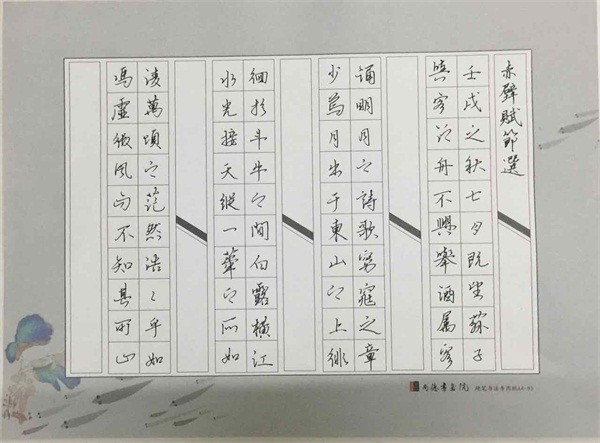 赤壁賦節選
壬戌之秋七月既望蘇子
與客泛舟不興舉酒属客
誦明月之詩歌窈窕之章
少焉月出于東山之上徘
徊於斗牛之間白露橫江
水光接天縱一葦之所如
凌萬頃之茫然浩々乎如
馮虛御風而不知其所止